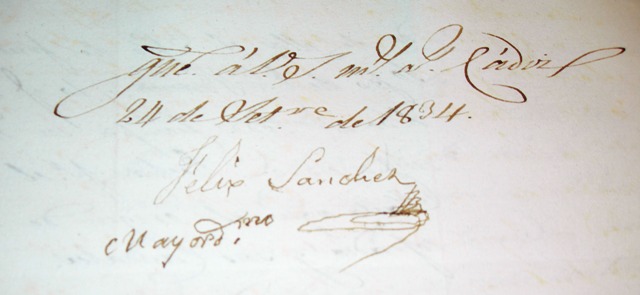 gue. á V. S. m.s a.s Cádiz
24 de Set.re de 1834.
Felix Sanchez
Mayord.mo